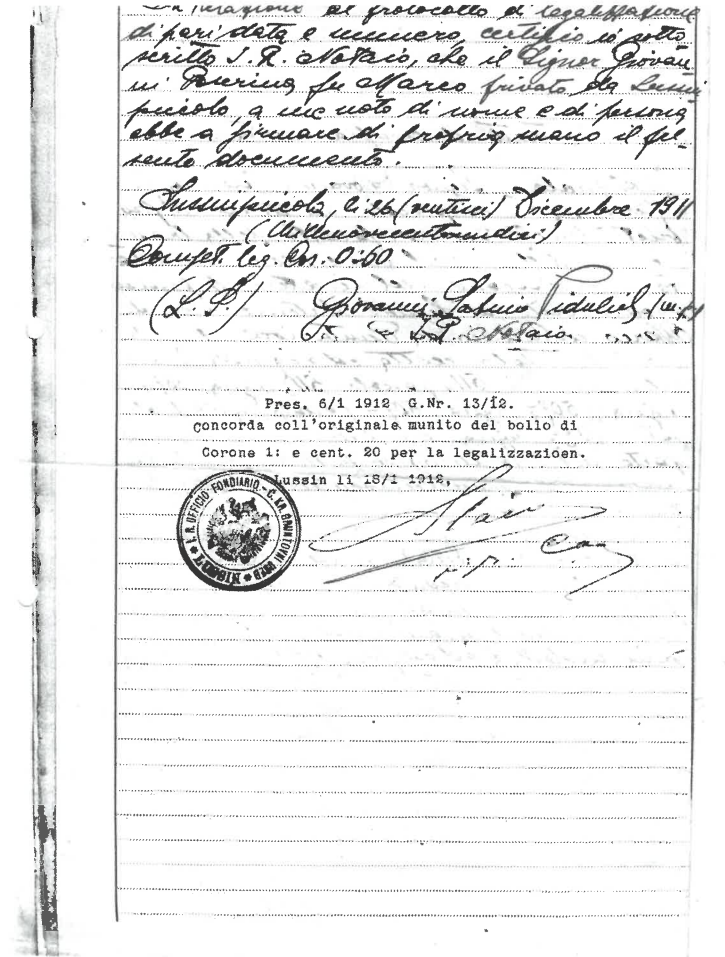 In relazione al protocollo di legalizzazione
di pari data e numero, certifico io sotto
scritto I. R. Notaio, che il Signor Giovan-
ni fu Marco privato da Lussin
piccolo, a me noto di nome e di persona
ebbe a firmare di propria mano il pre-
sente documento.
Lussinpiccolo, li 26 (ventisei) Dicembre 1911
(Millenovecentoundici)
Compet. leg. Cor. 0:60
(L. S.) Giovanni
I. R. Notaio
Pres. 6/1 1912 G.Nr. 13/12.
Concorda coll'originale munito del bollo di
Corone 1: e cent. 20 per la legalizzazioen.
Lussin li 18/1 1912.
I. R. UFFICIO FONDIARIO - C. KR. GRUNTOVNI URED